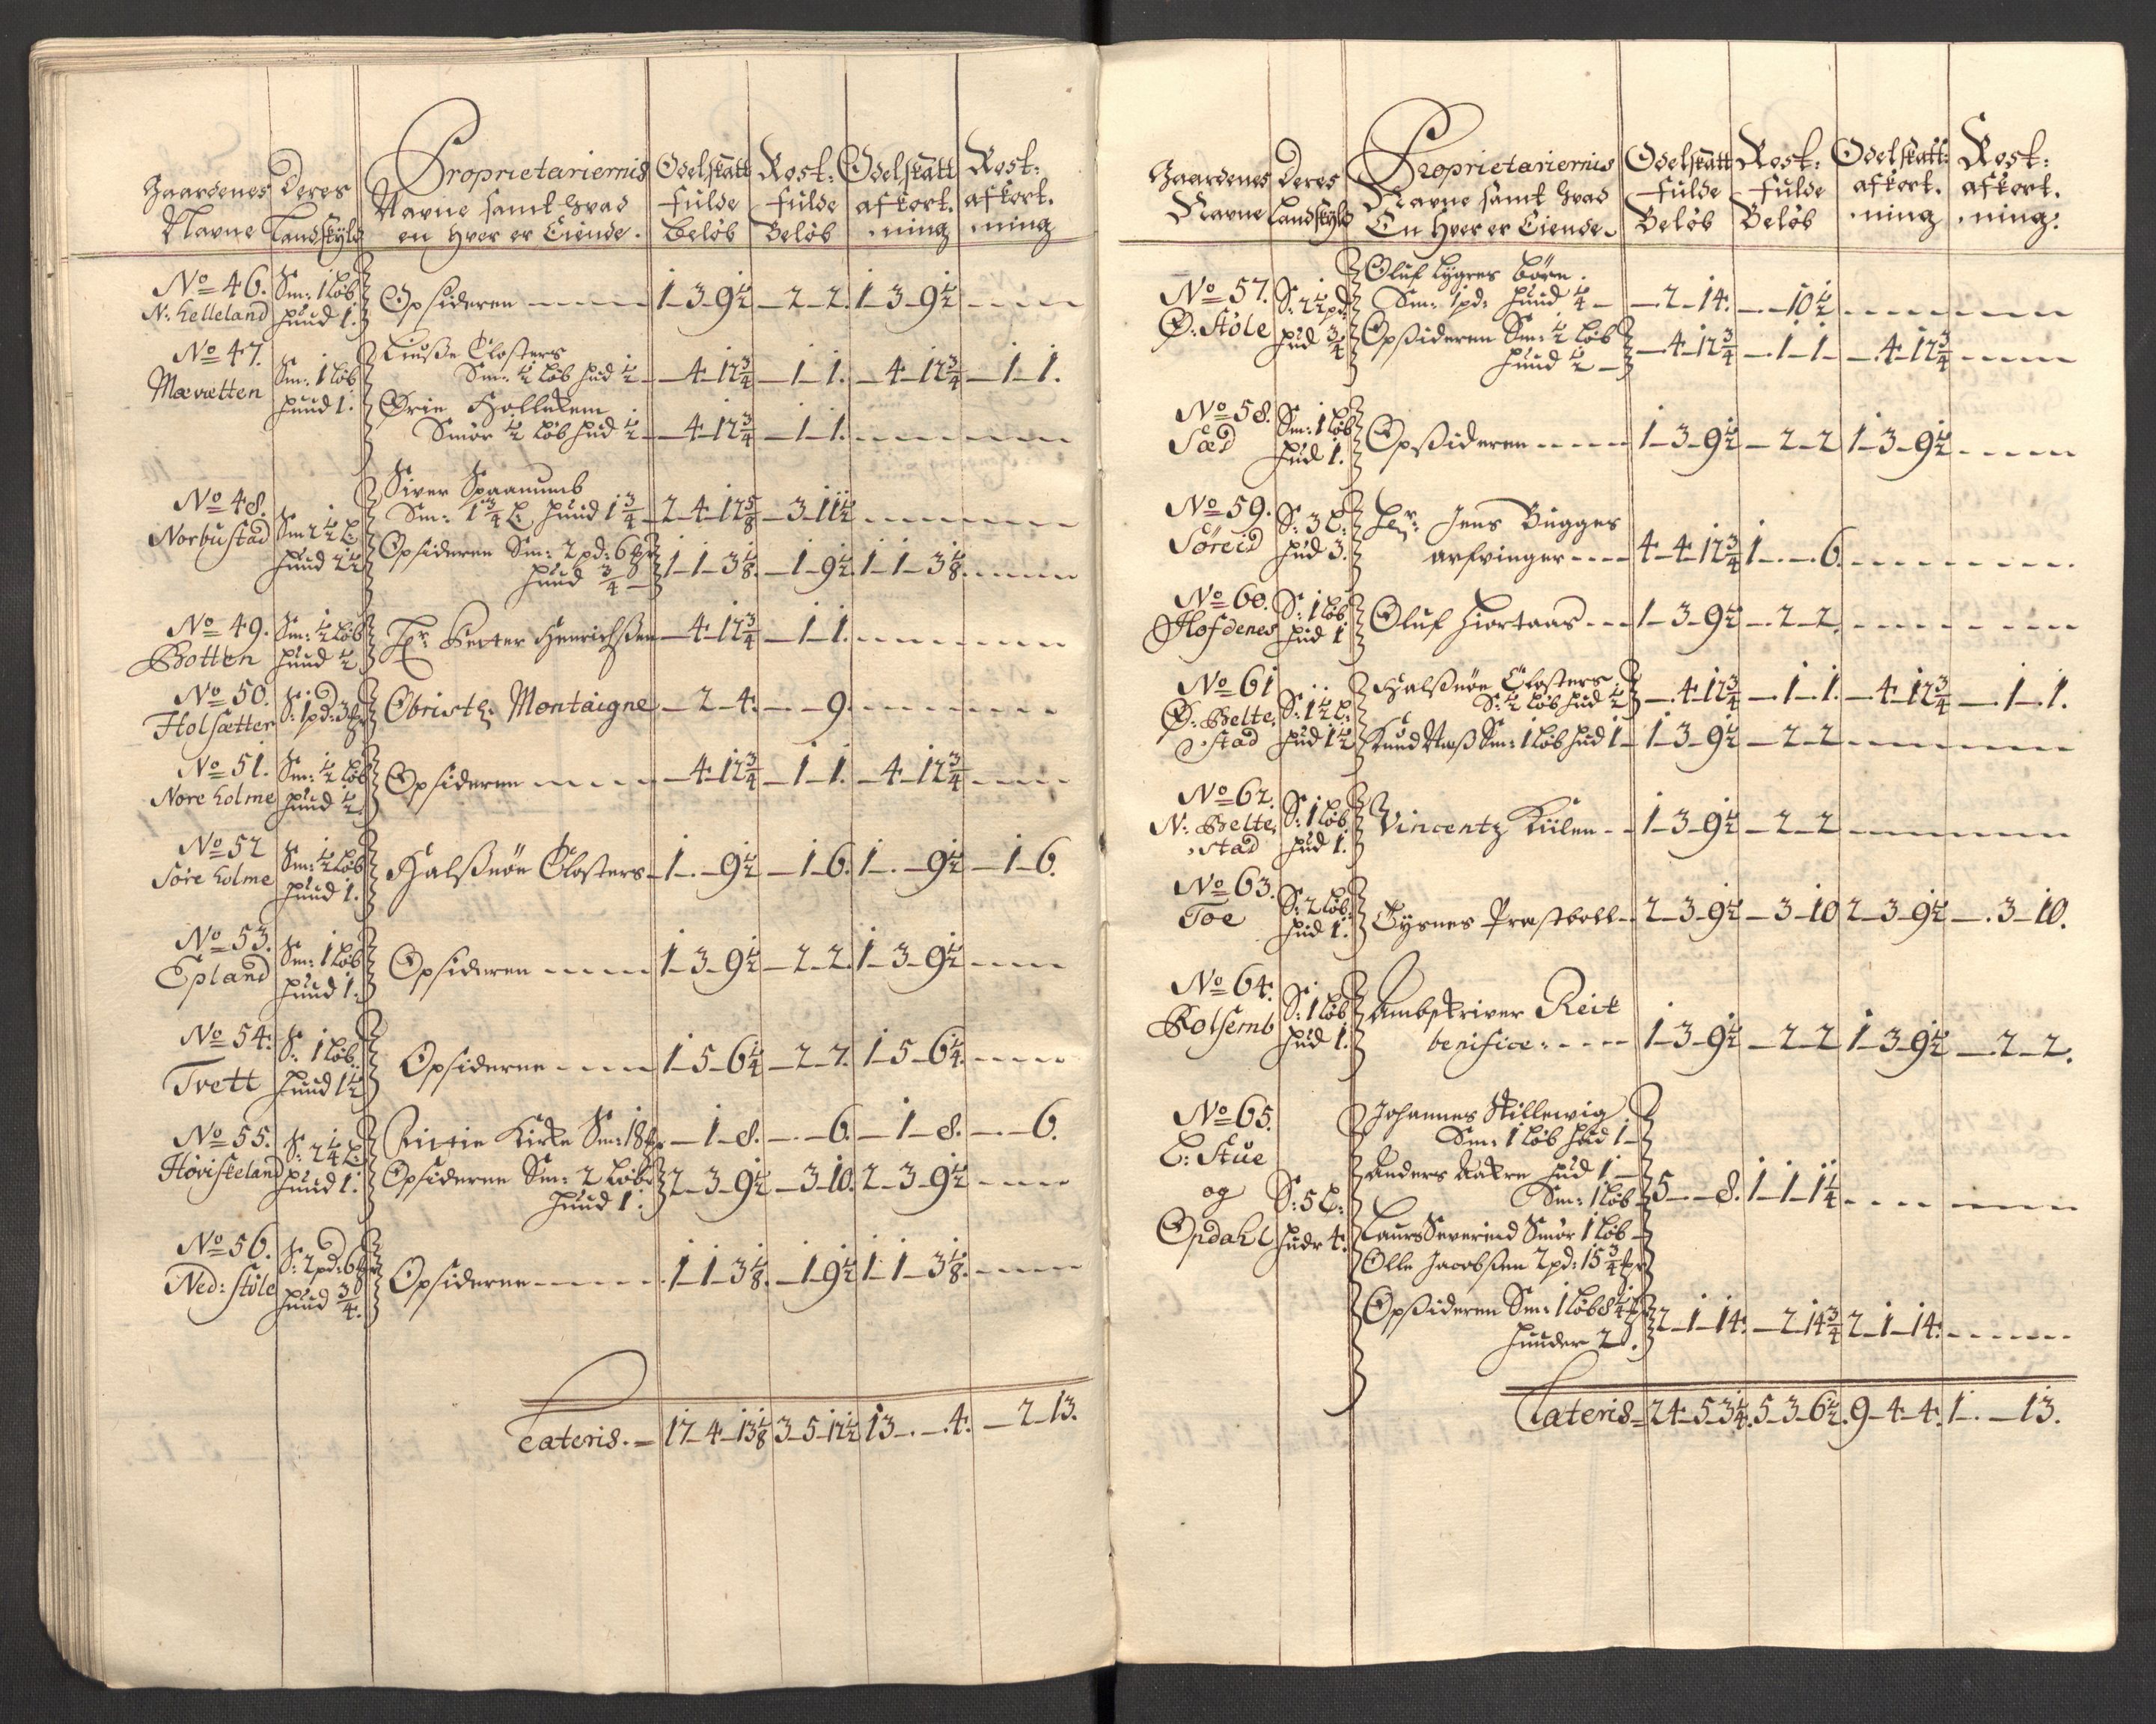 Gaardenes Deres Proprietariernis Odelskatt Rost: Odelskatt Rost:
Navne Landskyld Navne samt hvad fulde fulde afkort. afkort.
en hver er Eiende. beløb Beløb ning ning
No 46. Sm: 1 løb Opsideren 1-3-9½ -2-2. 1-3-9½
N: Helleland huud 1.
No 47. Sm: 1 løb Closters
Mævætten huud 1. Sm: ½ løb hud ½ -4-12¾ -1-1. -4-12¾ -1-1.
Smør ½ løb hud ½ -4-12¾ -1-1.
No 48. Siver
Norbustad Sm 2½ L: Sm: 1¾ L: huud 1¾ 2-4-12⅝ -3-11½
huud 2½ Opsideren Sm: 2 pd: 6 1-1-3⅛ -1-9½ 1-1-3⅛
huud ¾
No 49. Sm: ½ løb Hr Petter Henrichsen -4-12¾ -1-1.
Botten huud ½
No 50. S: 1 pd: 3 Obristl: Montaigne -2-4. -9.
Holsætter
No 51. Sm: ½ løb Opsideren -4-12¾ -1-1. -4-12¾
Nore holme huud ½
No 52 Sm: ½ løb Halsnøe Closters 1-.-9½ -1-6. 1-.-9½ -1-6.
Søre holme huud 1.
No 53. Sm: 1 løb Opsideren 1-3-9½ -2-2. 1-3-9½
Epland huud 1.
No 54. S: 1 løb Opsiderne 1-5-6¼ -2-7. 1-5-6¼
Tvett huud 1½
No 55. S: 2¼ L: Kirke Sm: 18 -1-8. -6. -1-8. -6.
Høviskeland huud 1. Opsiderne Sm: 2 løb 2-3-9½ -3-10. 2-3-9½
huud 1.
No 56. S: 2 pd: 6 Opsiderne 1-1-3⅛ -1-9½ 1-1-3⅛
Ned: støle huud ¾
Lateris. 17-4-13⅛ 3-5-12½ 13-.-4. -2-13.
Gaardenes Deres Proprietariernis Odelskatt Rost: Odelskatt: Rost:
Navne Landskyld Navne samt hvad fulde fulde afkort. afkort.
En hver er Eiende. Beløb Beløb ning ning:
No 57. S: 2½ pd Oluf Lygres børn.
Ø. Støle hud ¾ Sm: 1 pd: huud ¼ -2-14. -10½
Opsideren Sm: ½ løb -4-12¾ -1-1. -4-12¾
huud ½
No 58. Sm: 1 løb Opsideren 1-3-9½ -2-2 1-3-9½
Sæd hud 1.
No 59. S: 3 L: Hr: Jens Bugges
Søreid hud 3. arfvinger 4-4-12¾ 1-.-6.
No 60. S: 1 løb Oluf Hiortaas 1-3-9½ -2-2.
Hofdenes hud 1
No 61 S: 1½ L: Halsnøe Closters
Ø: Belte, hud 1½ S: ½ løb hud ½ -4-12¾ -1-1. -4-12¾ -1-1.
stad Knud Næs Sm: 1 løb hud 1 1-3-9½ -2-2
No 62. S: 1 løb Vincentz Kiilen 1-3-9½ -2-2
N: Belte, hud 1.
stad
No 63. S: 2 løb Tysnes Præstboll 2-3-9½ -3-10 2-3-9½ -3-10.
Toe hud 1.
No 64. S: 1 løb Ambskriver Reit
Bolsemb hud 1. benifice: 1-3-9½ -2-2 1-3-9½ -2-2.
No 65. Johannes Stillewig
L: Stue Sm: 1 løb hud 1
og S: 5 L: Anders Aakre hud 1.
Opdahl hudr 4. Sm: 1 løb 5-.-8. 1-1-1¼
Laurs Severind Smør 1 løb
Olle Jacobsen 2 pd: 15¾
Opsideren Sm: 1 løb 8¼ 2-1-14. -2-14¾ 2-1-14.
huuder 2.
Lateris 24-5-3¼. 5-3-6½. 9-4-4. 1-.-13.